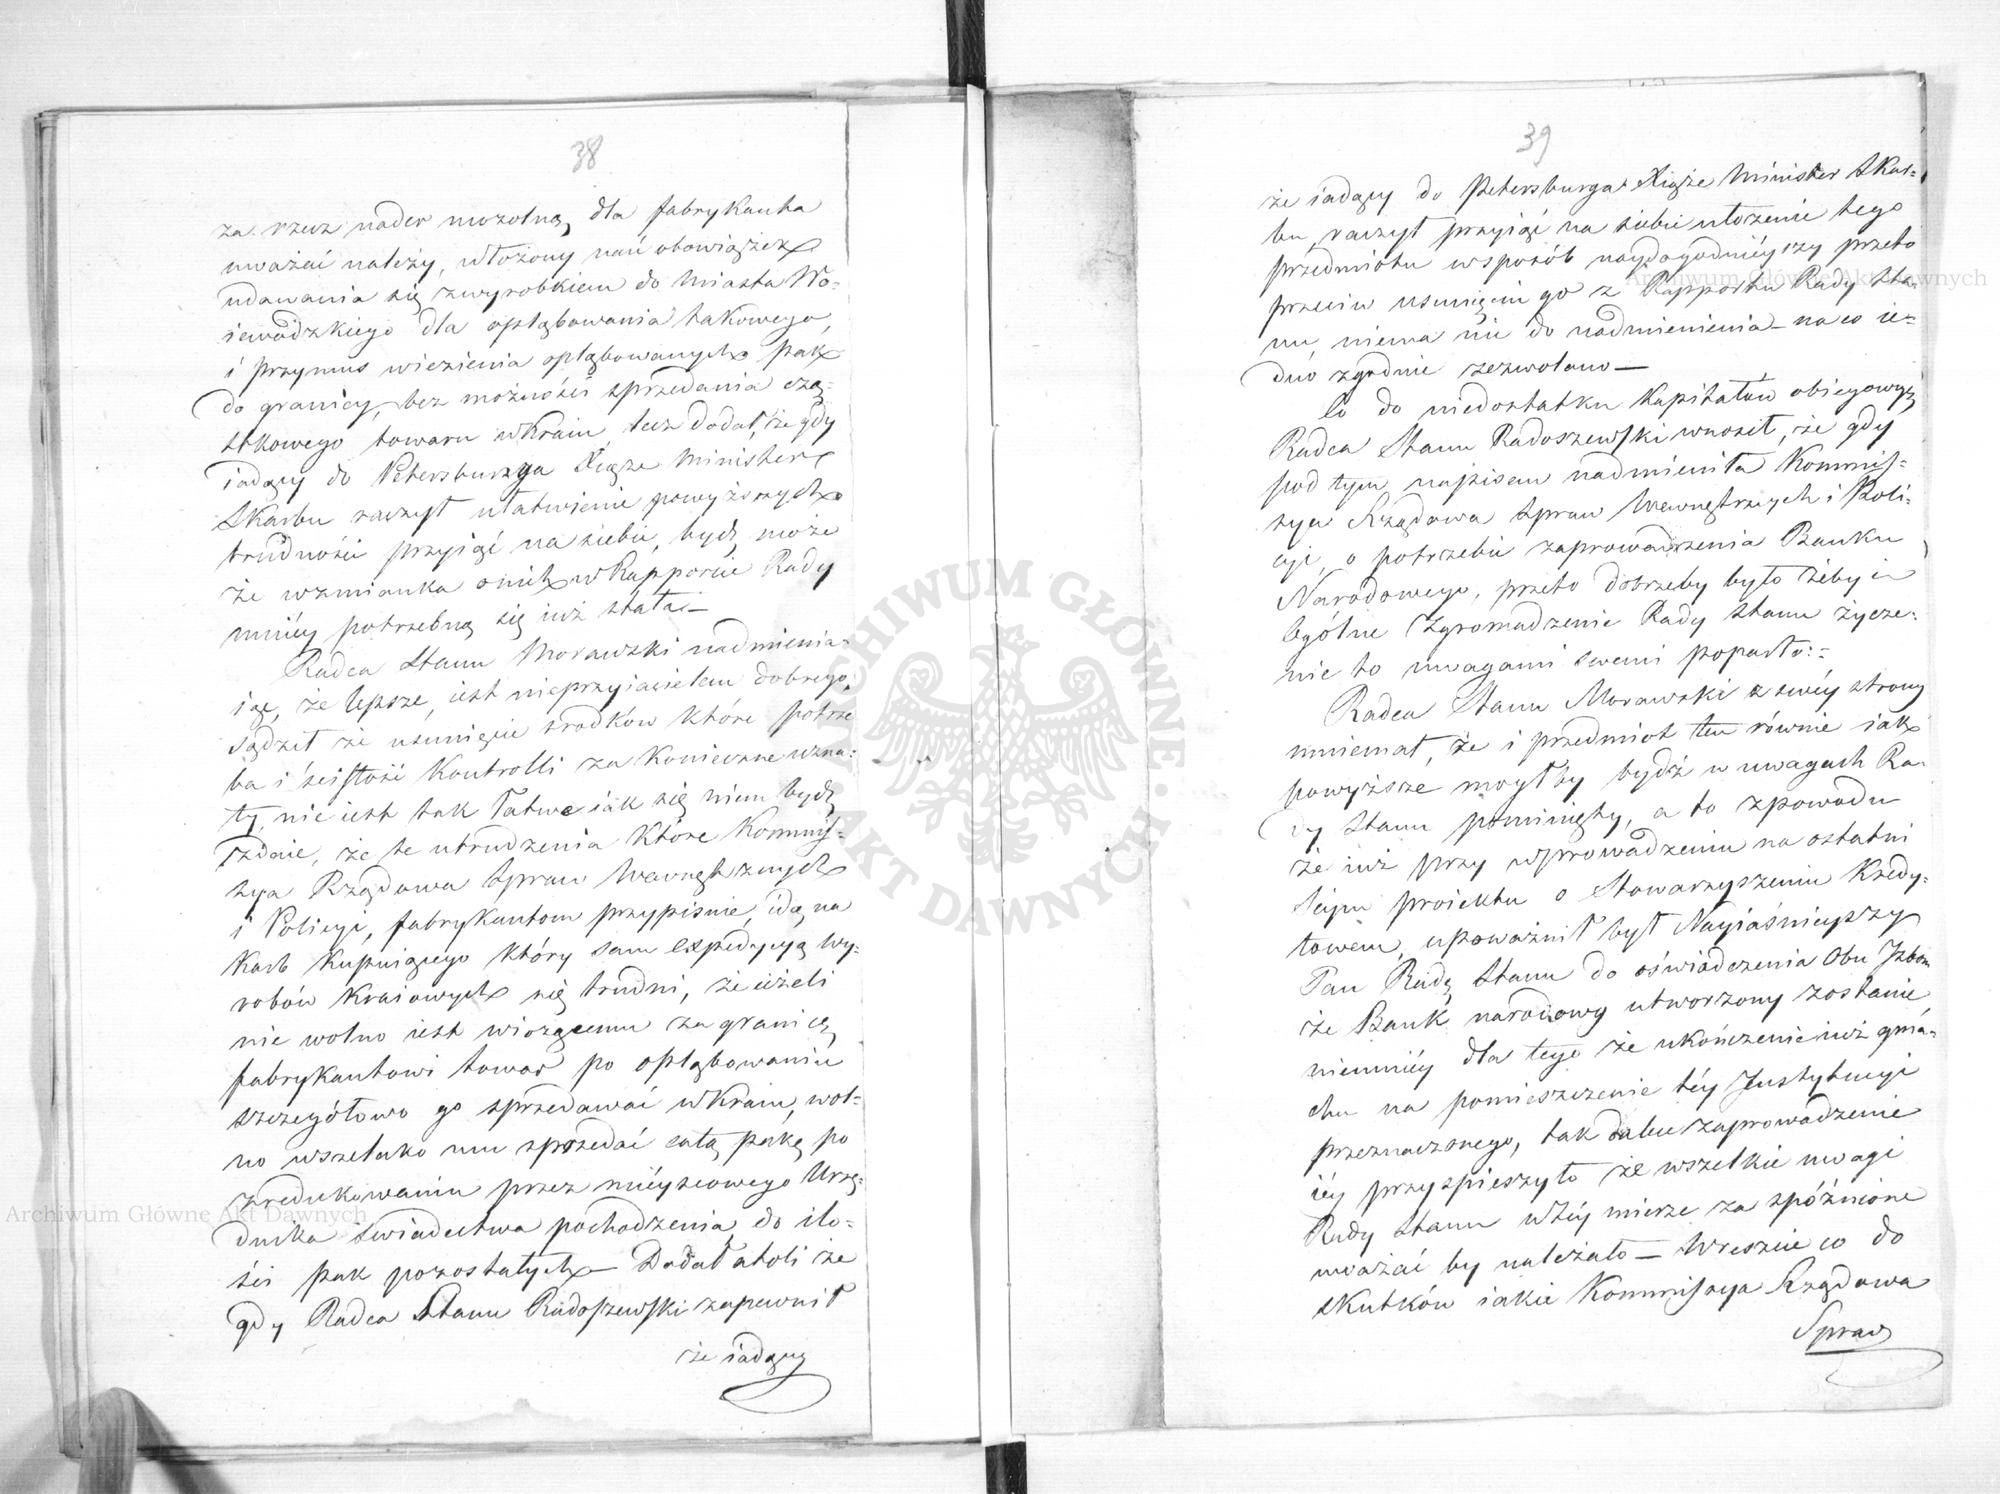 38
za rzecz nader mozolną dla fabrykanta
uważać należy, włożony nań obowiązek
udawania się z wyrobkiem do Miasta Wo-
iewódzkiego dla opląbowania takowego,
i przymus wiezienia opląbowanych pak
do granicy, bez możności sprzedania czą-
stkowego towaru w Kraiu, lecz dodał, że gdy
iadący do Petersburga Xiąże Minister
Skarbu raczył ułatwienie powyższych
trudności przyiąć na siebie, bydź może
że wzmianka o nich w Rapporcie Rady
mniéy potrzebną się iuż stała.—
Radca Stanu Morawski nadmienia-
iąc, że lepsze, iest nieprzyiacielem dobrego,
sądził że usunięcie srodków które potrze
ba i ścisłość Kontrolli za konieczne uzna-
ły, nie iest tak łatwe iak się niem bydź
zdaie, że te utrudzenia które Kommis-
sya Rządowa Spraw Wewnętrznych
i Policyi, fabrykantom przypisuie, idą na
karb kupuiącego który sam expedycyą wy-
robów kraiowych się trudni, że ieżeli
nie wolno iest wiozącemu za granicę
fabrykantowi towar po opląbowaniu
szczegółowo go sprzedawać w Kraiu, wol-
no wszelako mu sprzedać całą pakę po
zredukowaniu przez mieyscowego Urzę-
dnika świadectwa pochodzenia do ilo-
ści pak pozostałych — Dodał atoli że
gdy Radca Stanu Radoszewski zapewnił
że iadący
39
że iadący do Petersburga Xiąże Minister Skar-
bu, raczył przyiąć na siebie ułożenie tego
przedmiotu w sposób naydogodniéyszy przeto
przeciw usunięciu go z Rapportu Rady Sta-
nu, niema nic do nadmienienia — na co ie-
dno zgodnie zezwolono —
Co do niedostatku Kapitałów obiegowych
Radca Stanu Radoszewski wnosił, że gdy
pod tym napisem nadmieniła Kommis-
sya Rządowa Spraw Wewnętrznych i Poli-
cyi, o potrzebie zaprowadzenia Banku
Narodowego, przeto dobrzeby było żeby i
Ogólne Zgromadzenie Rady Stanu życze-
nie to uwagami swemi poparło:=
Radca Stanu Morawski z swéy strony
mniemał, że i przedmiot ten równie iak
powyższe mógłby bydź w uwagach Ra-
dy Stanu pominięty, a to z powodu
że iuż przy wprowadzeniu na ostatni
Seym proiektu o Stowarzyszeniu Kredy-
towem, upoważnił był Nayiaśnieyszy
Pan Radę Stanu do oświadczenia Obu Izbom
że Bank narodowy utworzony zostanie
niemniéy dla tego że ukończenie iuż gma-
chu na pomieszczenie téy Instytucyi
przeznaczonego, tak dalece zaprowadzenie
iéy przyspieszyło że wszelkie uwagi
Rady Stanu w téy mierze za spóźnione
uważać by należało — Wreszcie co do
skutków iakie Kommissya Rządowa
Spraw
Archiwum Główne Akt Dawnych
Archiwum Główne Akt Dawnych
ARCHIWUM GŁÓWNE AKT DAWNYCH